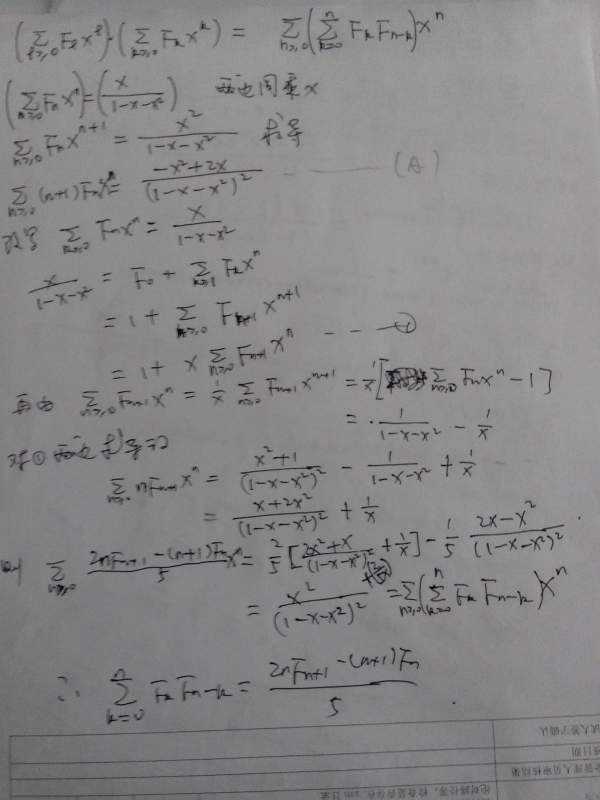 (∑_{l≥0} F_l x^l)·(∑_{k≥0} F_k x^k) = ∑_{n≥0} (∑_{k=0}^{n} F_k F_{n-k}) x^n
(∑_{n≥0} F_n x^n) = (x/(1-x-x²)) 两边同乘x
∑_{n≥0} F_n x^{n+1} = x²/(1-x-x²) 求导
∑_{n≥0} (n+1) F_n x^n = (-x²+2x)/(1-x-x²)² ------ (A)
∑_{n≥0} F_n x^n = x/(1-x-x²)
x/(1-x-x²) = F_0 + ∑_{k≥1} F_k x^n
= 1 + ∑_{k≥0} F_{k+1} x^{n+1}
= 1 + x ∑_{n≥0} F_{n+1} x^n ---- ①
再由 ∑_{n≥0} F_{n+1} x^n = 1/x ∑_{n≥0} F_{n+1} x^{n+1} = 1/x [∑_{n≥0} F_n x^n - 1]
= 1/(1-x-x²) - 1/x
对①两边求导
∑_{n≥0} n F_{n+1} x^n = (x²+1)/(1-x-x²)² - 1/(1-x-x²) + 1/x
= (x+2x²)/(1-x-x²)² + 1/x
则 ∑_{n≥0} (2nF_{n+1} - (n+1)F_n)/5 x^n = 2/5 [(2x²+x)/(1-x-x²)² + 1/x] - 1/5 (2x-x²)/(1-x-x²)²
= x²/(1-x-x²)² = ∑_{n≥0} (∑_{k=0}^{n} F_k F_{n-k}) x^n
∴ ∑_{k=0}^{n} F_k F_{n-k} = (2nF_{n+1} - (n+1)F_n)/5 .